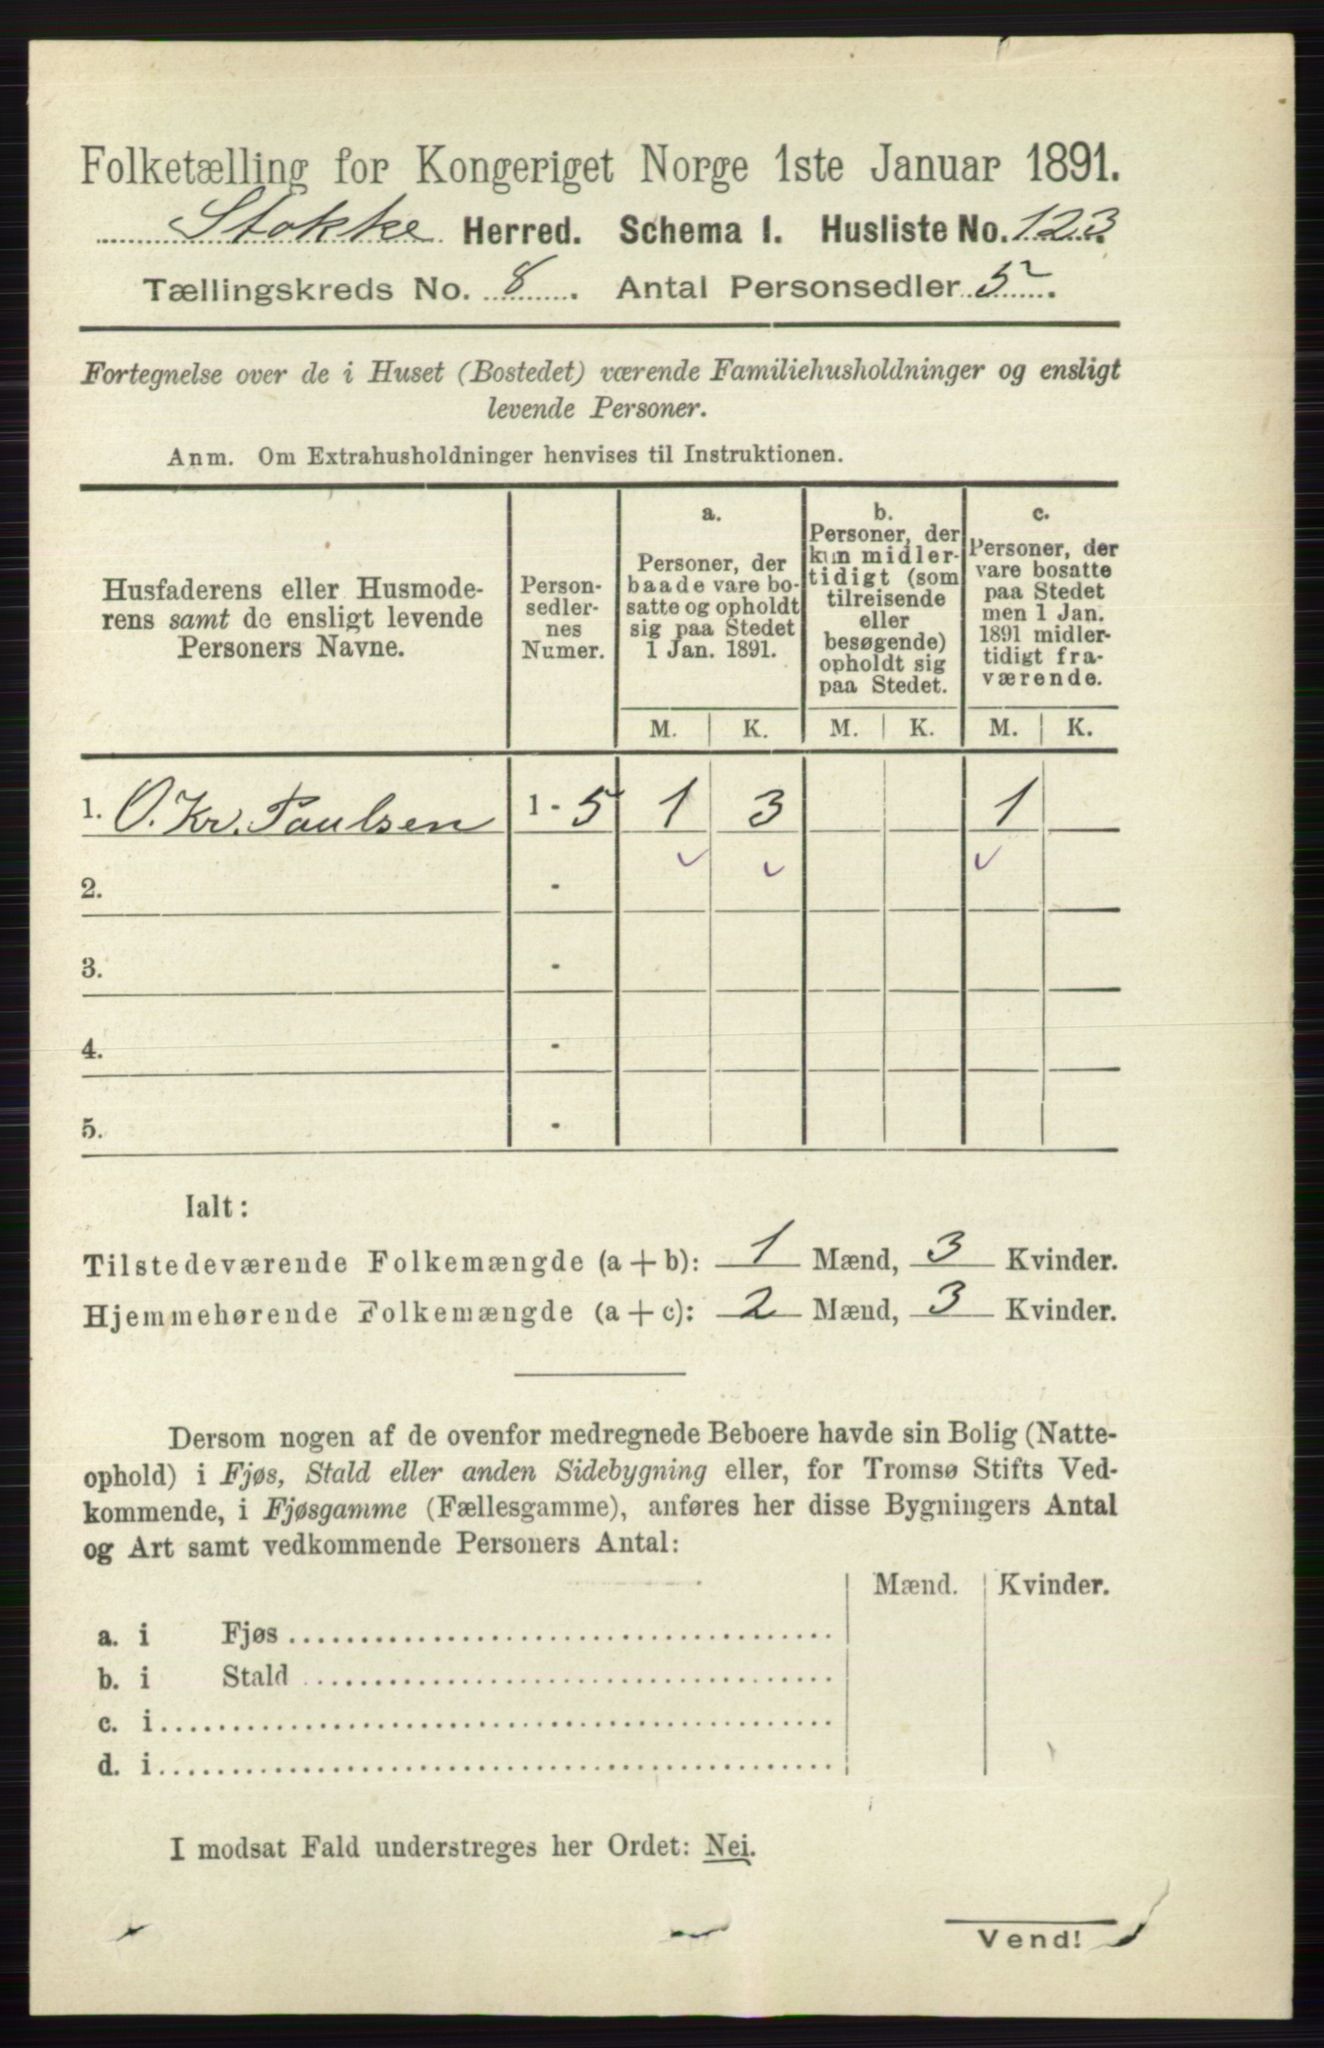 Folketælling for Kongeriget Norge 1ste Januar 1891.
Stokke Herred. Schema I. Husliste No. 123
Tællingskreds No. 8. Antal Personsedler 5.
Fortegnelse over de i Huset (Bostedet) værende Familiehusholdninger og ensligt
levende Personer.
Anm. Om Extrahusholdninger henvises til Instruktionen.
Husfaderens eller Husmode-
rens samt de ensligt levende
Personers Navne.
Person-
sedler-
nes
Numer.
a.
Personer, der
baade vare bo-
satte og opholdt
sig paa Stedet
1 Jan. 1891.
b.
Personer, der
kun midler-
tidigt (som
tilreisende
eller
besøgende)
opholdt sig
paa Stedet.
c.
Personer, der
vare bosatte
paa Stedet
men 1 Jan.
1891 midler-
tidigt fra-
værende.
M. K. M. K. M. K.
1. O. Kr. Paulsen 1 - 5 1 3 1
2. -
3. -
4. -
5. -
Ialt:
Tilstedeværende Folkemængde (a + b): 1 Mænd, 3 Kvinder.
Hjemmehørende Folkemængde (a + c): 2 Mænd, 3 Kvinder.
Dersom nogen af de ovenfor medregnede Beboere havde sin Bolig (Natte-
ophold) i Fjøs, Stald eller anden Sidebygning eller, for Tromsø Stifts Ved-
kommende, i Fjøsgamme (Fællesgamme), anføres her disse Bygningers Antal
og Art samt vedkommende Personers Antal:
Mænd. Kvinder.
a. i Fjøs
b. i Stald
c. i
d. i
I modsat Fald understreges her Ordet: Nei.
Vend!